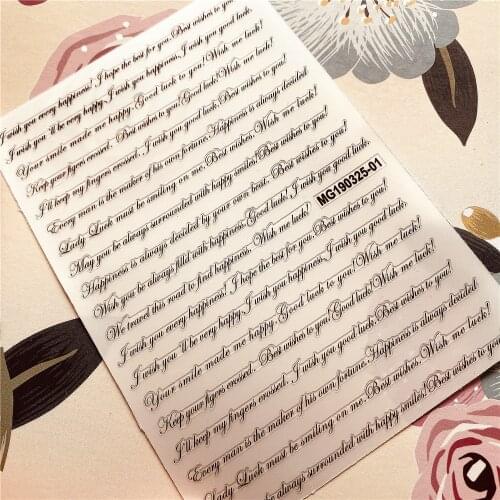 I wish you every happiness! I hope the best for you. Best wishes to you
I wish you 'll be very happy. I wish you happiness. I wish you good luck.
Your smile made me happy. Good luck to you! Wish me luck!
Keep your figers crossed. Best wishes to you! Good luck! Wish me luck!
I'll keep my fingers crossed. I wish you good luck. Best wishes to you!
Every man is the maker of his own fortune. Happiness is always decided
Lady Luck must be smiling on me. Best wishes. Wish me luck!
May you be always surrounded with happy smiles! Best wishes to you!
Happiness is always decided by your own heat. Best wishes to you!
Wish you be always filld with happiness. Good luck! I wish you good luck.
We travel this road to find happiness. Wish me luck!
MG190325-01
I wish you every happiness! I hope the best for you. Best wishes to you!
I wish you 'll be very happy. I wish you happiness. I wish you good luck.
Your smile made me happy. Good luck to you! Wish me luck!
Keep your figers crossed. Best wishes to you! Good luck! Wish me luck!
I'll keep my fingers crossed. I wish you good luck. Best wishes to you!
Every man is the maker of his own fortune. Happiness is always decided
Lady Luck must be smiling on me. Best wishes. Wish me luck!
be always surrounded with happy smiles! Best wishes to you!